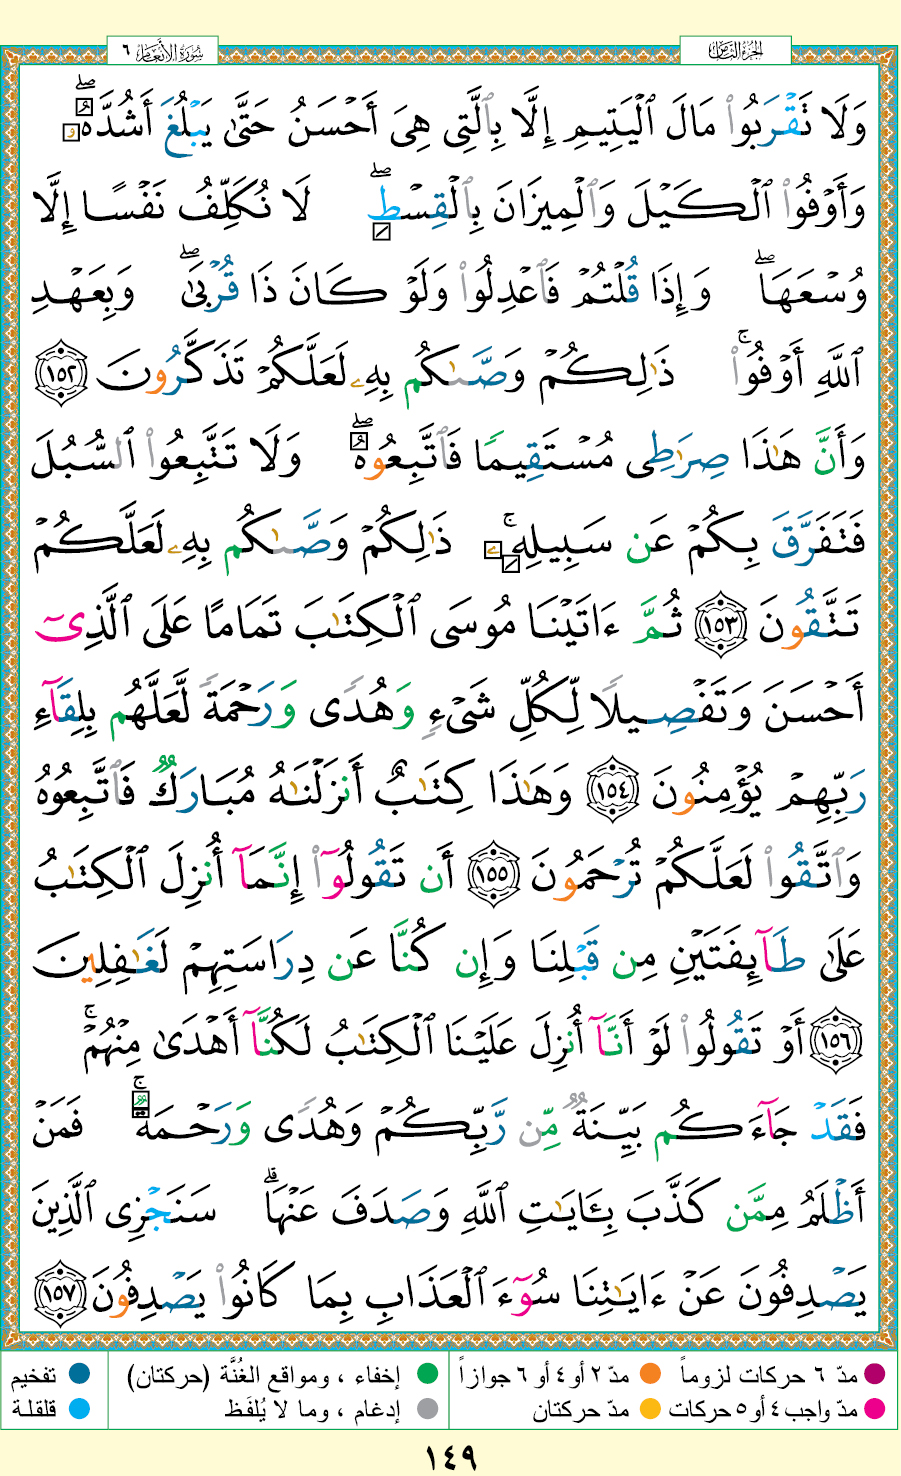 سُورَةُ الأَنْعَام ٦
الجُزْءُ الثَّامِنُ
وَلَا تَقْرَبُوا۟ مَالَ ٱلْيَتِيمِ إِلَّا بِٱلَّتِى هِىَ أَحْسَنُ حَتَّىٰ يَبْلُغَ أَشُدَّهُۥۖ
وَأَوْفُوا۟ ٱلْكَيْلَ وَٱلْمِيزَانَ بِٱلْقِسْطِۖ لَا نُكَلِّفُ نَفْسًا إِلَّا
وُسْعَهَاۖ وَإِذَا قُلْتُمْ فَٱعْدِلُوا۟ وَلَوْ كَانَ ذَا قُرْبَىٰۖ وَبِعَهْدِ
ٱللَّهِ أَوْفُوا۟ۚ ذَٰلِكُمْ وَصَّىٰكُم بِهِۦ لَعَلَّكُمْ تَذَكَّرُونَ ١٥٢
وَأَنَّ هَٰذَا صِرَٰطِى مُسْتَقِيمًا فَٱتَّبِعُوهُۖ وَلَا تَتَّبِعُوا۟ ٱلسُّبُلَ
فَتَفَرَّقَ بِكُمْ عَن سَبِيلِهِۦۚ ذَٰلِكُمْ وَصَّىٰكُم بِهِۦ لَعَلَّكُمْ
تَتَّقُونَ ١٥٣ ثُمَّ ءَاتَيْنَا مُوسَى ٱلْكِتَٰبَ تَمَامًا عَلَى ٱلَّذِىٓ
أَحْسَنَ وَتَفْصِيلًا لِّكُلِّ شَىْءٍ وَهُدًى وَرَحْمَةً لَّعَلَّهُم بِلِقَآءِ
رَبِّهِمْ يُؤْمِنُونَ ١٥٤ وَهَٰذَا كِتَٰبٌ أَنزَلْنَٰهُ مُبَارَكٌ فَٱتَّبِعُوهُ
وَٱتَّقُوا۟ لَعَلَّكُمْ تُرْحَمُونَ ١٥٥ أَن تَقُولُوٓا۟ إِنَّمَآ أُنزِلَ ٱلْكِتَٰبُ
عَلَىٰ طَآئِفَتَيْنِ مِن قَبْلِنَا وَإِن كُنَّا عَن دِرَاسَتِهِمْ لَغَٰفِلِينَ
١٥٦ أَوْ تَقُولُوا۟ لَوْ أَنَّآ أُنزِلَ عَلَيْنَا ٱلْكِتَٰبُ لَكُنَّآ أَهْدَىٰ مِنْهُمْۚ
فَقَدْ جَآءَكُم بَيِّنَةٌ مِّن رَّبِّكُمْ وَهُدًى وَرَحْمَةٌۚ فَمَنْ
أَظْلَمُ مِمَّن كَذَّبَ بِـَٔايَٰتِ ٱللَّهِ وَصَدَفَ عَنْهَاۗ سَنَجْزِى ٱلَّذِينَ
يَصْدِفُونَ عَنْ ءَايَٰتِنَا سُوٓءَ ٱلْعَذَابِ بِمَا كَانُوا۟ يَصْدِفُونَ ١٥٧
مدّ ٦ حركات لزوماً مدّ ٢ أو ٤ أو ٦ جوازاً إخفاء ، ومواقع الغُنَّة (حركتان) تفخيم
مدّ واجب ٤ أو ٥ حركات مدّ حركتان إدغام ، وما لا يُلفَظ قلقلة
١٤٩